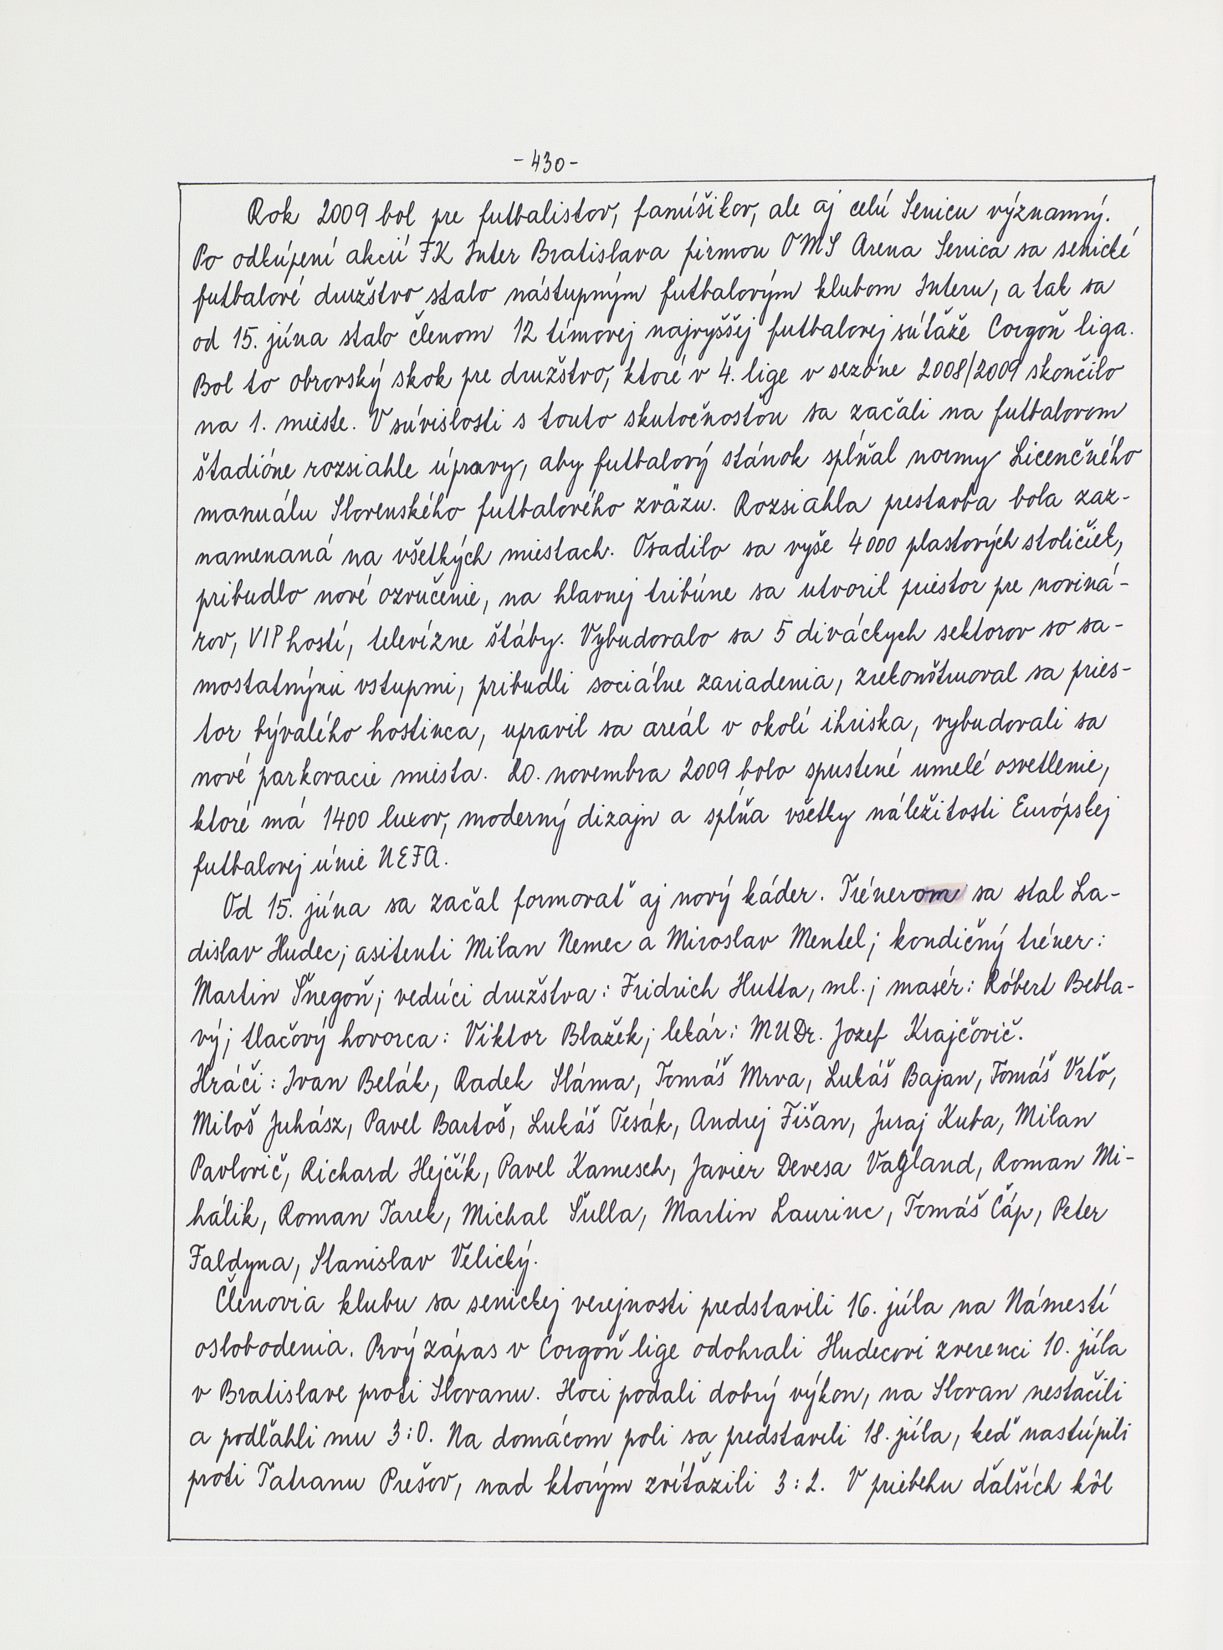 - 430 -
Rok 2009 bol pre futbalistov, fanúšikov, ale aj celú Senicu významný.
Po odkúpení akcií FK Inter Bratislava firmou OMS Arena Senica sa senické
futbalové družstvo stalo nástupným futbalovým klubom Interu, a tak sa
od 15. júna stalo členom 12 tímovej najvyššej futbalovej súťaže Corgoň liga.
Bol to obrovský skok pre družstvo, ktoré v 4. lige v sezóne 2008/2009 skončilo
na 1. mieste. V súvislosti s touto skutočnosťou sa začali na futbalovom
štadióne rozsiahle úpravy, aby futbalový stánok spĺňal normy Licenčného
manuálu Slovenského futbalového zväzu. Rozsiahla prestavba bola zaz-
namenaná na všetkých miestach. Osadilo sa vyše 4000 plastových stoličiek,
pribudlo nové ozvučenie, na hlavnej tribúne sa utvoril priestor pre noviná-
rov, VIP hostí, televízne štáby. Vybudovalo sa 5 diváckych sektorov so sa-
mostatnými vstupmi, pribudli sociálne zariadenia, zrekonštruoval sa pries-
tor bývalého hostinca, upravil sa areál v okolí ihriska, vybudovali sa
nové parkovacie miesta. 20. novembra 2009 bolo spustené umelé osvetlenie,
ktoré má 1400 luxov, moderný dizajn a spĺňa všetky náležitosti Európskej
futbalovej únie UEFA.
Od 15. júna sa začal formovať aj nový káder. Trénerom sa stal La-
dislav Hudec; asitenti Milan Nemec a Miroslav Mentel; kondičný tréner:
Martin Šnegoň; vedúci družstva: Fridrich Hutta, ml.; masér: Róbert Bebla-
vý; tlačový hovorca: Viktor Blažek; lekár: MUDr. Jozef Krajčovič.
Hráči: Ivan Belák, Radek Sláma, Tomáš Mrva, Lukáš Bajan, Tomáš Vrťo,
Miloš Juhász, Pavel Bartoš, Lukáš Tesák, Andrej Fišan, Juraj Kuba, Milan
Pavlovič, Richard Hejčík, Pavel Kamesch, Javier Devesa Vagland, Roman Mi-
hálik, Roman Tarek, Michal Šulla, Martin Laurinc, Tomáš Čáp, Peter
Faldyna, Stanislav Velický.
Členovia klubu sa senickej verejnosti predstavili 16. júla na Námestí
oslobodenia. Prvý zápas v Corgoň lige odohrali Hudecovi zverenci 10. júla
v Bratislave proti Slovanu. Hoci podali dobrý výkon, na Slovan nestačili
a podľahli mu 3:0. Na domácom poli sa predstavili 18. júla, keď nastúpili
proti Tatranu Prešov, nad ktorým zvíťazili 3:2. V priebehu ďalších kôl